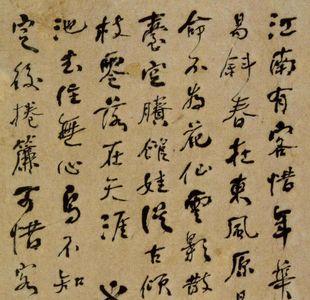 江南有客惜年華
易斜春在東風原是
命不为花仙雲影散
囊空賸館娃従古傾
枝零落在天涯
池去住無心鳥不知
定後捲簾可惜客